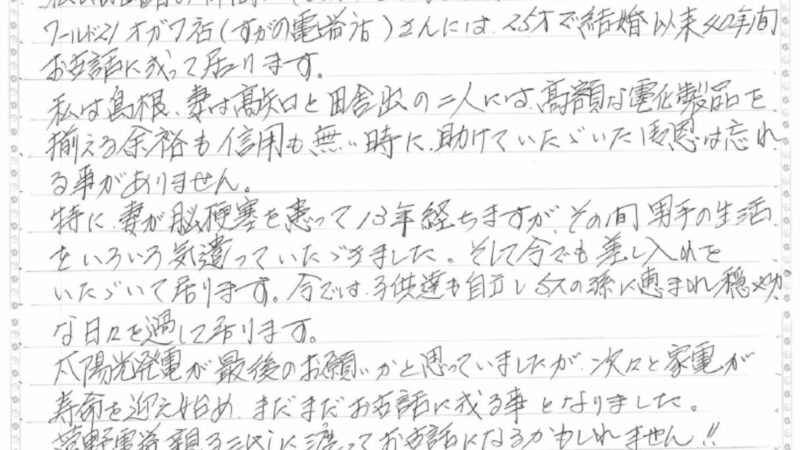 ワールド21オガワ店(すがの電器店)さんには、25才で結婚以来40年間
お世話に成って居ります。
私は島根、妻は高知と田舎出の二人には、高額な電化製品を
揃える余裕も信用も無い時に、助けていただいた御恩は忘れ
る事がありません。
特に、妻が脳梗塞を患って13年経ちますが、その間男手の生活
をいろいろ気遣っていただきました。そして今でも差し入れを
いただいて居ります。今では、子供達も自立し5人の孫に恵まれ穏やか
な日々を過して居ります。
太陽光発電が最後のお願いかと思っていましたが、次々と家電が
寿命を迎え始め、まだまだお世話に成る事となりました。
菅野電器親子三代に渡ってお世話になるかもしれません!!